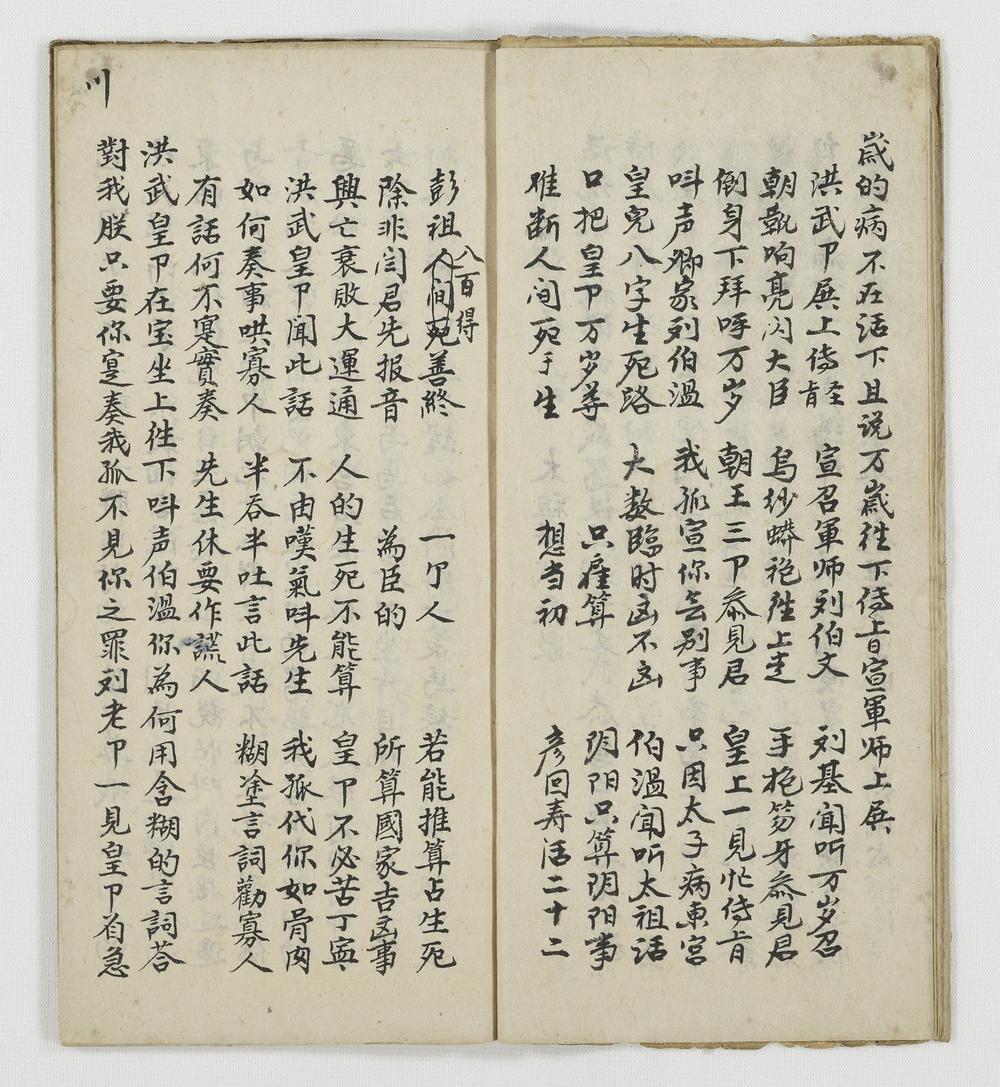 歳的病不在话下且说万歳往下传上旨宣軍师上展
洪武卩展上传旨 宣召軍师刘伯文 刘基闻听万岁召
朝靴响亮闪大臣 乌纱蟒袍陞上走 手抱笏牙叅見君
倒身下拜呼万岁 朝王三卩叅見君 皇上一見忙传旨
呌声卿家刘伯溫 我孤宣你无别事 只因太子病東宮
皇兒八字生死路 大数臨时凶不凶 伯溫闻听太祖话
口把皇卩万岁尊 只𢈔算 阴阳只算阴阳事
难断人间死于生 想当初 彦回寿活二十二
彭祖八百得善終 一个人 若能推算占生死
除非阎君先报音 為臣的 所算國家吉凶事
興亡衰敗大運通 人的生死不能算 皇卩不必苦丁寕
洪武皇卩闻此話 不由嘆氣呌先生 我孤代你如骨肉
如何奏事哄寡人 半吞半吐言此話 糊塗言詞勸寡人
有話何不寔實奏 先生休要作謊人
洪武皇卩在宝坐上往下呌声伯溫你為何用含糊的言詞荅
對我朕只要你寔奏我孤不見你之罪刘老卩一見皇卩着急
川